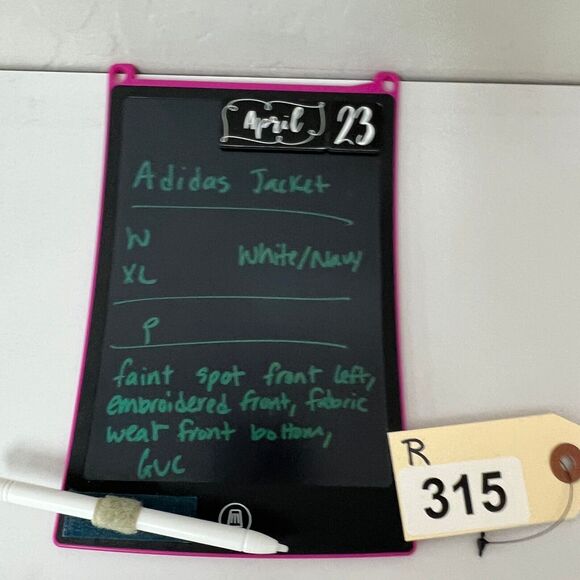 April 23
Adidas Jacket
W
White/Navy
XL
P
faint spot front left,
embroidered front, fabric
wear front bottom,
GUC
R
315